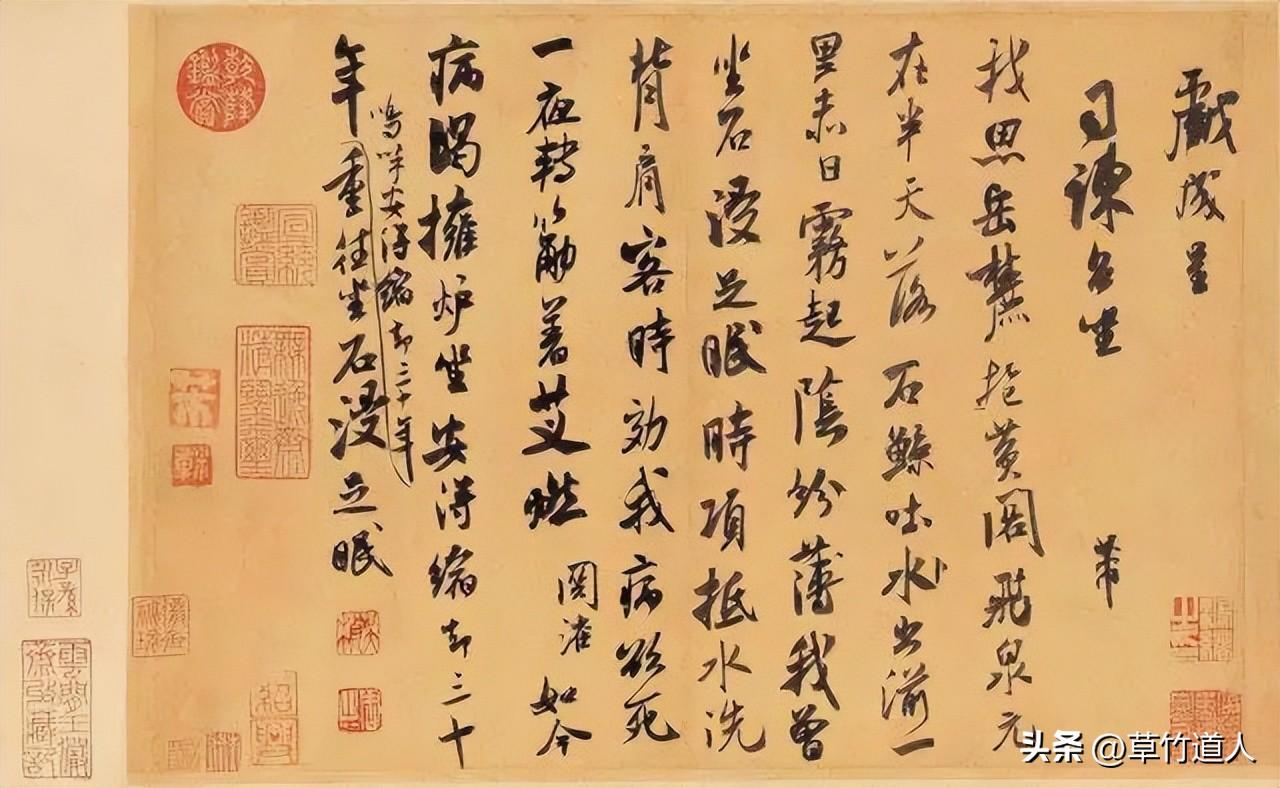 戲成呈
司諫台坐
芾
我思岳麓抱黃閣飛泉元
在半天落石鯨吐水出湔一
里赤日霧起陰紛薄我曾
坐石浸足眠時項抵水洗
背肩客時効我病欲死
一夜轉筋著艾燃 關灌 如今
病渴擁炉坐安得縮却三十
嗚呼安得縮却三十年
年重往坐石浸足眠
乾隆鑑賞
紹興
头条 @草竹道人